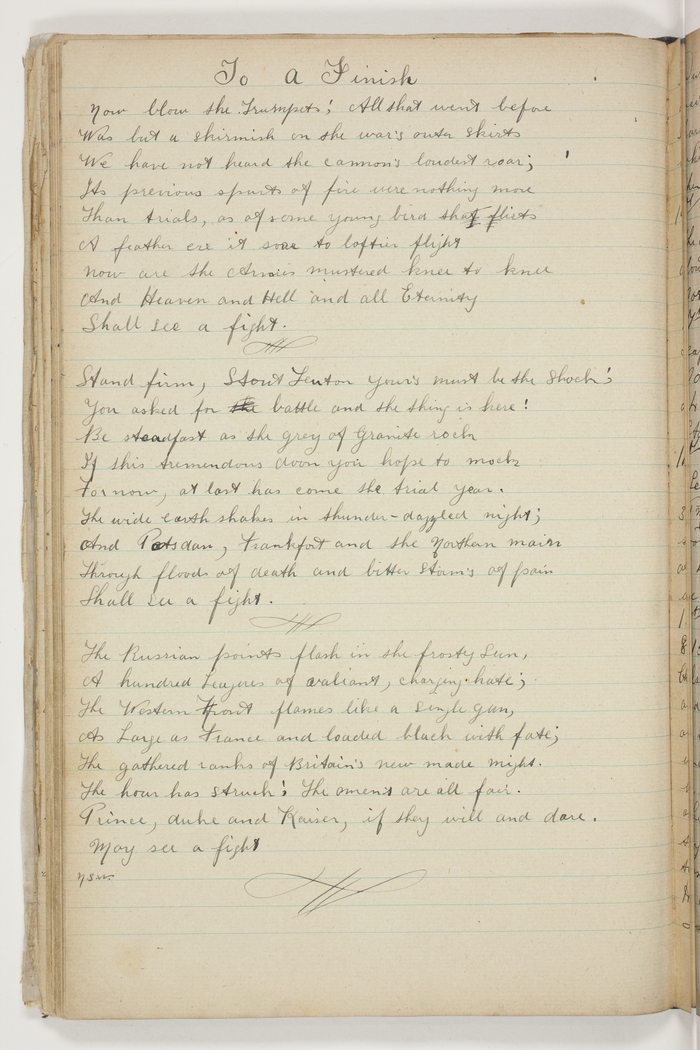 To A Finish
Now blow the Trumpets! All that went before
Was but a skirmish on the war's outer skirts
We have not heard the cannon's loudest roar;
Its previous spurts of fire were nothing more
Than trials, as of some young bird that flirts
A feather ere it soar to loftier flight
Now are the Armies mustered knee to knee
And Heaven and Hell and all Eternity
Shall see a fight.
Stand firm, Stout Teuton yours must be the shock!
You asked for the battle and the thing is here!
Be steadfast as the grey of Granite rock
If this tremendous doom you hope to mock
For now, at last has come the trial year.
The wide earth shakes in thunder-dazzled night;
And Potsdam, Frankfort and the Northern main
Through floods of death and bitter storms of pain
Shall see a fight.
The Russian points flash in the frosty Sun,
A hundred Leagues of valiant, charging hate;
The Western Front flames like a single gun,
As Large as France and loaded black with fate;
The gathered ranks of Britain's new made might.
The hour has struck! The omens are all fair.
Prince, duke and Kaiser, if they will and dare.
May see a fight
N.S.W.